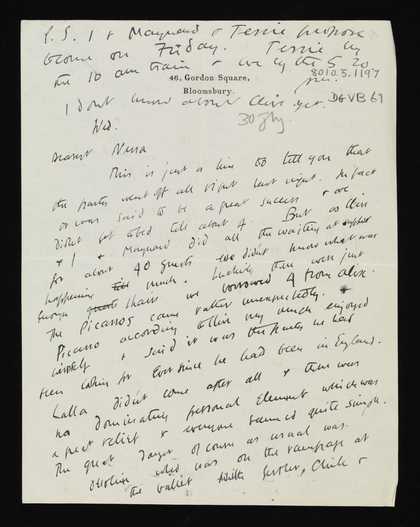 P.S. I & Maynard & Jessie propose
to come on Friday. Jessie by
the 10 am train & we by the 5.20
8010.5.1197
pm.
46, Gordon Square,
Bloomsbury.
I don't know about Clive yet. DGVB 69
Wed.
Dearest Nessa
This is just a line to tell you that
the party went off all right last night. In fact
it was said to be a great success & we
didnt get to bed till about 4. But as Clive
& I & Maynard did all the waiting at supper
for about 40 guests we didnt know what was
happening much. Luckily there were just
enough chairs we borrowed 4 from Alix.
The Picassos came rather unexpectedly.
Picasso according to Clive very much enjoyed
himself & said it was the party he had
been looking for ever since he had been in England.
Lalla didnt come after all & there was
no dominating personal element which was
a great relief & everyone seemed quite simple.
The great danger of course as usual was
Ottoline who was on the rampage at
the ballet with Gertler, Chile &